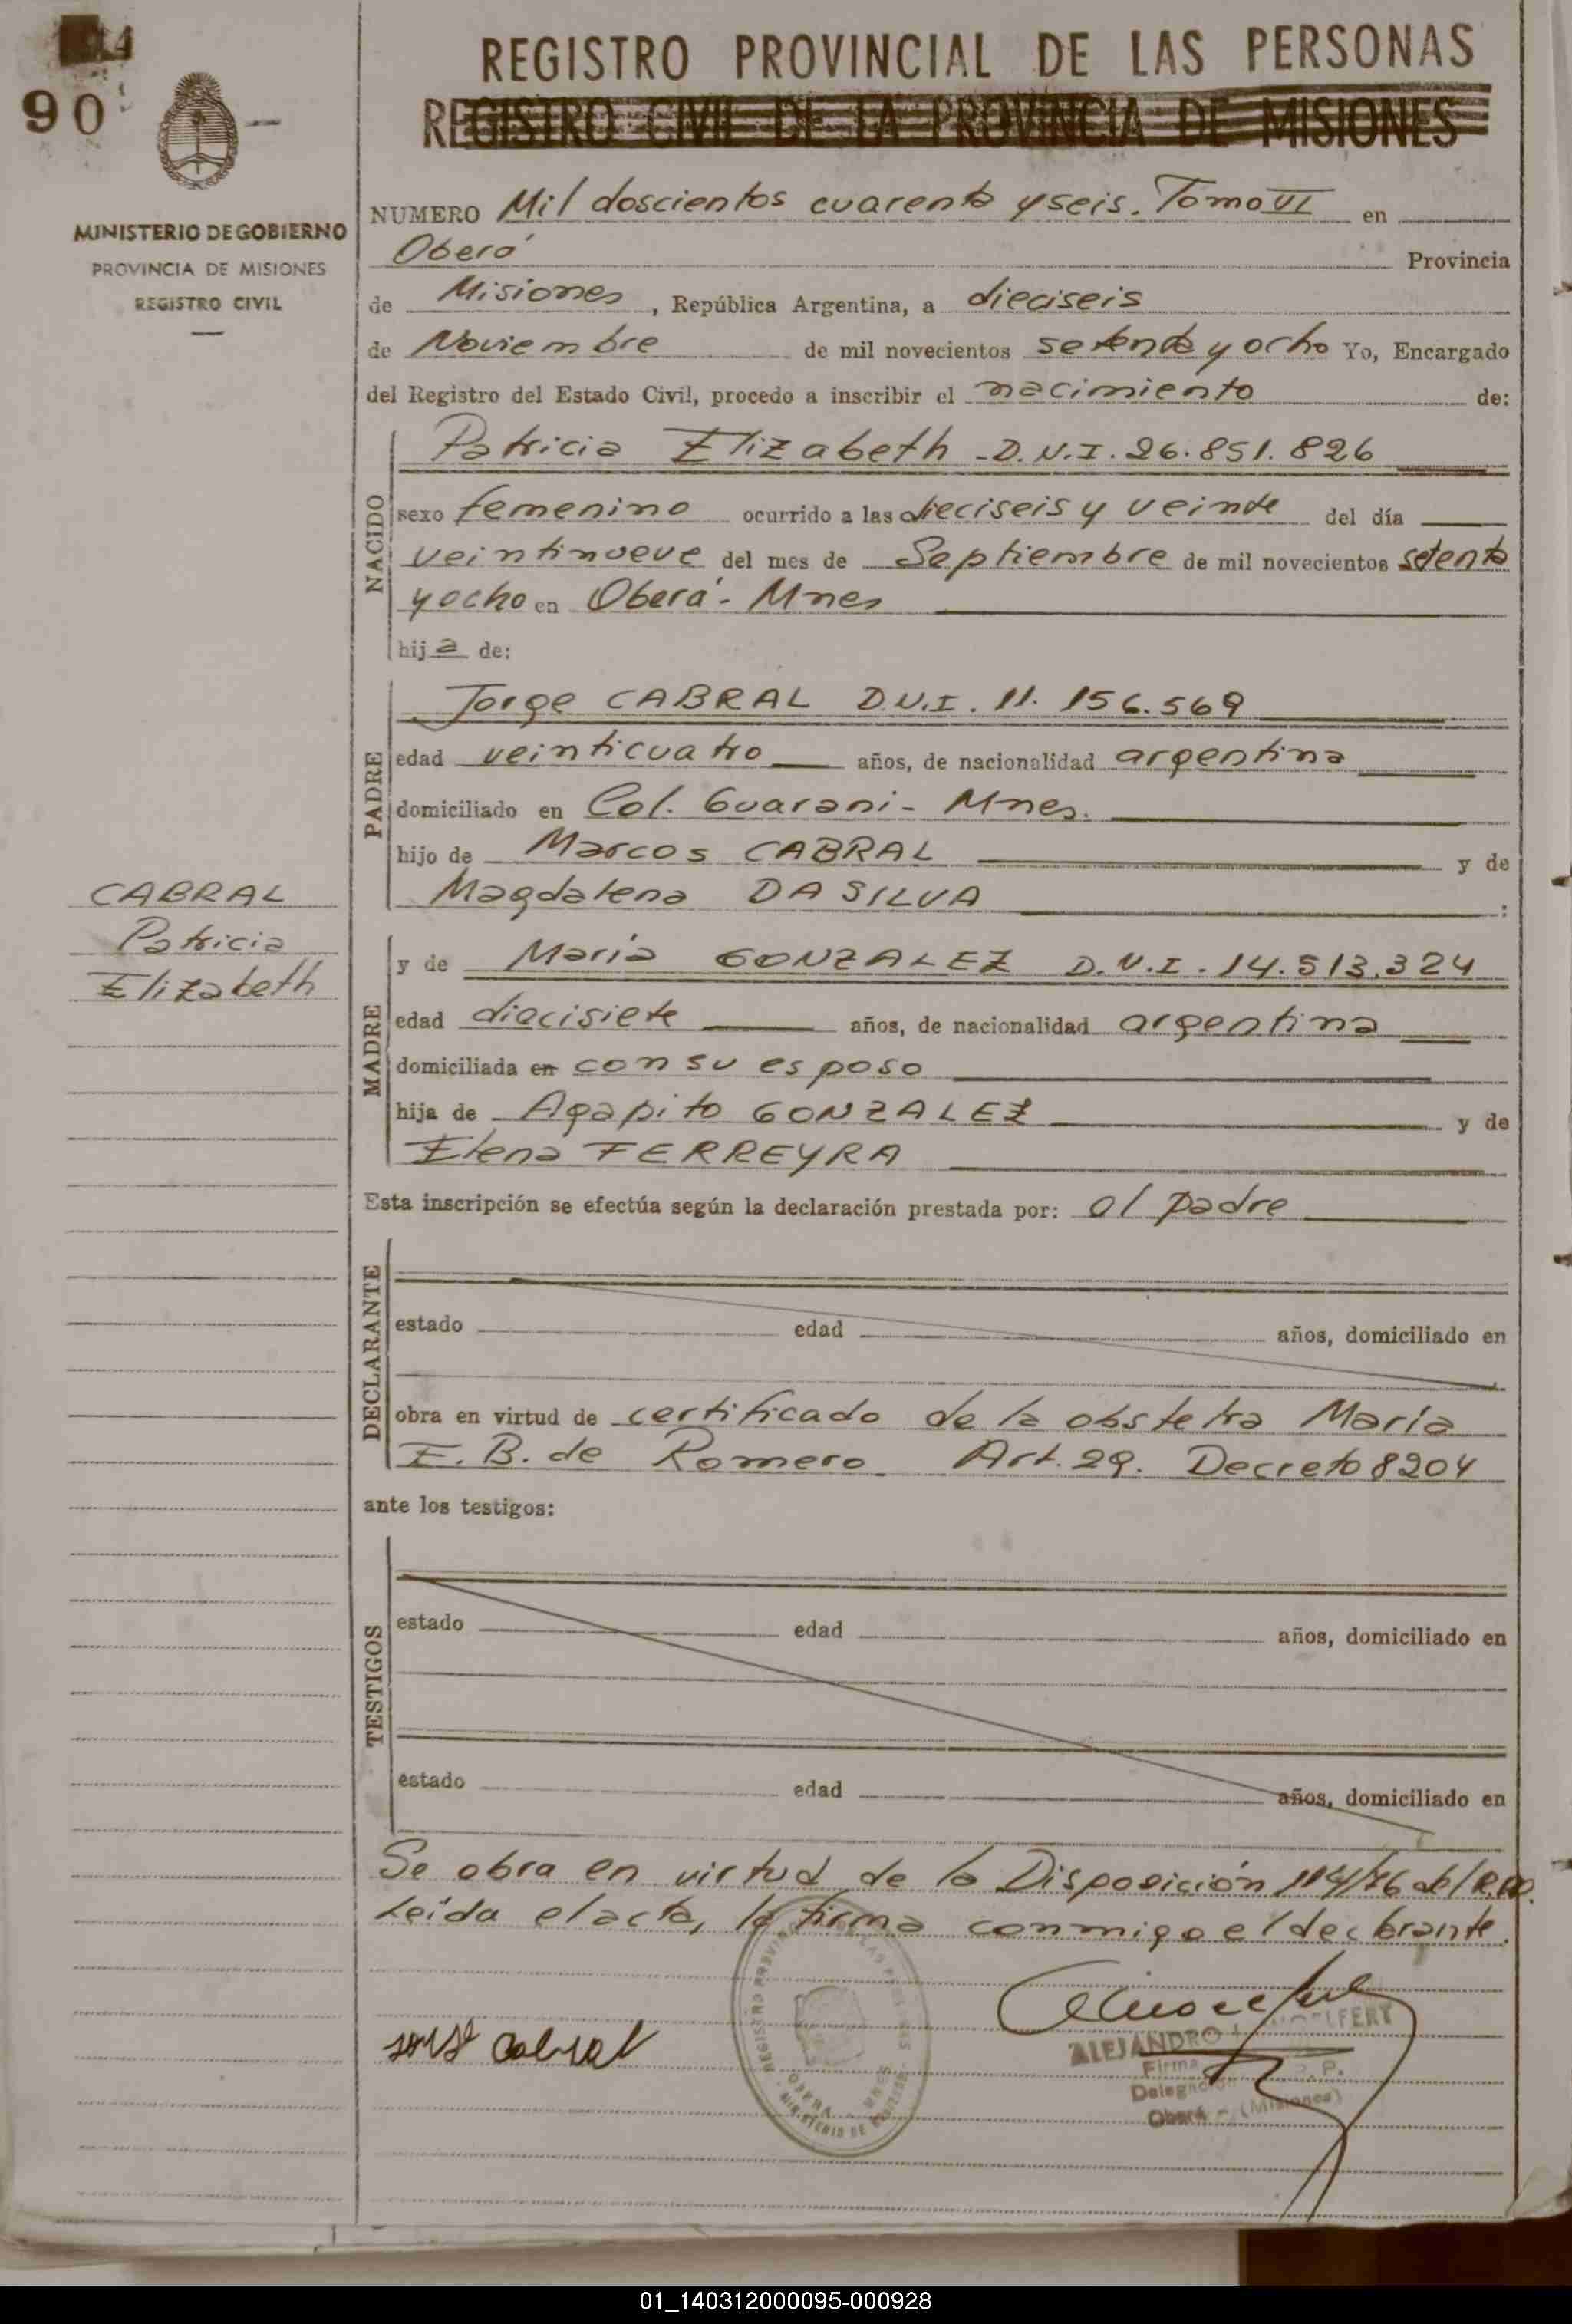 90
MINISTERIO DE GOBIERNO
PROVINCIA DE MISIONES
REGISTRO CIVIL
REGISTRO PROVINCIAL DE LAS PERSONAS
REGISTRO CIVIL DE LA PROVINCIA DE MISIONES
NUMERO Mil doscientos cuarenta y seis. Tomo VI en
Oberá Provincia
de Misiones, República Argentina, a dieciseis
de Noviembre de mil novecientos setenta y ocho Yo, Encargado
del Registro del Estado Civil, procedo a inscribir el nacimiento de:
NACIDO
Patricia Elizabeth - D.N.I. 26.851.826
sexo femenino ocurrido a las dieciseis y veinte del día
veintinueve del mes de Septiembre de mil novecientos setenta
y ocho en Oberá - Mnes
hija de:
PADRE
Jorge CABRAL D.N.I. 11.156.569
edad veinticuatro años, de nacionalidad argentina
domiciliado en Col. Guarani - Mnes.
hijo de Marcos CABRAL y de
Magdalena DA SILVA :
CABRAL
Patricia
Elizabeth
MADRE
y de María GONZALEZ D.N.I. 14.513.324
edad diecisiete años, de nacionalidad argentina
domiciliada en con su esposo
hija de Agapito GONZALEZ y de
Elena FERREYRA
Esta inscripción se efectúa según la declaración prestada por: el padre
DECLARANTE
estado edad años, domiciliado en
obra en virtud de certificado de la obstetra María
E. B. de Romero Art. 29. Decreto 8204
ante los testigos:
TESTIGOS
estado edad años, domiciliado en
estado edad años, domiciliado en
Se obra en virtud de la Disposición 114/76 del
Leída el acta, la firma conmigo el declarante.
Jorge Cabral
ALEJANDRO
Firma
R. P.
Oberá - (Misiones)
01_140312000095-000928